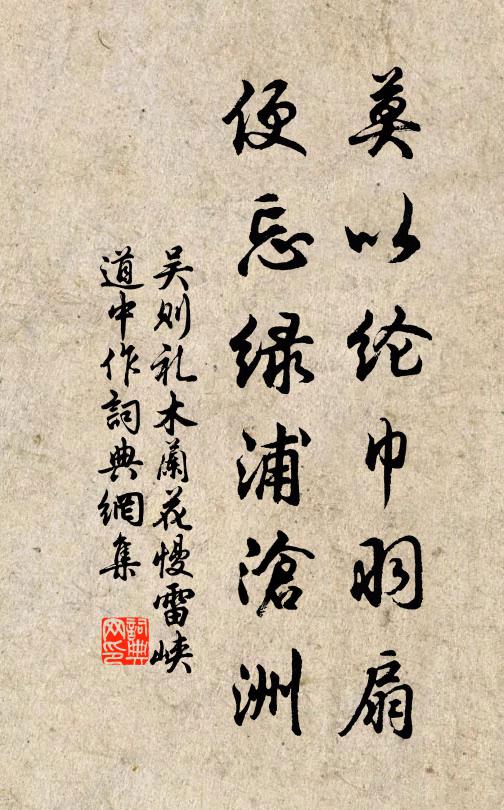 莫以纶巾羽扇
便忘绿浦滄洲
吴则礼木蘭花慢雷峡
道中作詞典網集
詞典网印